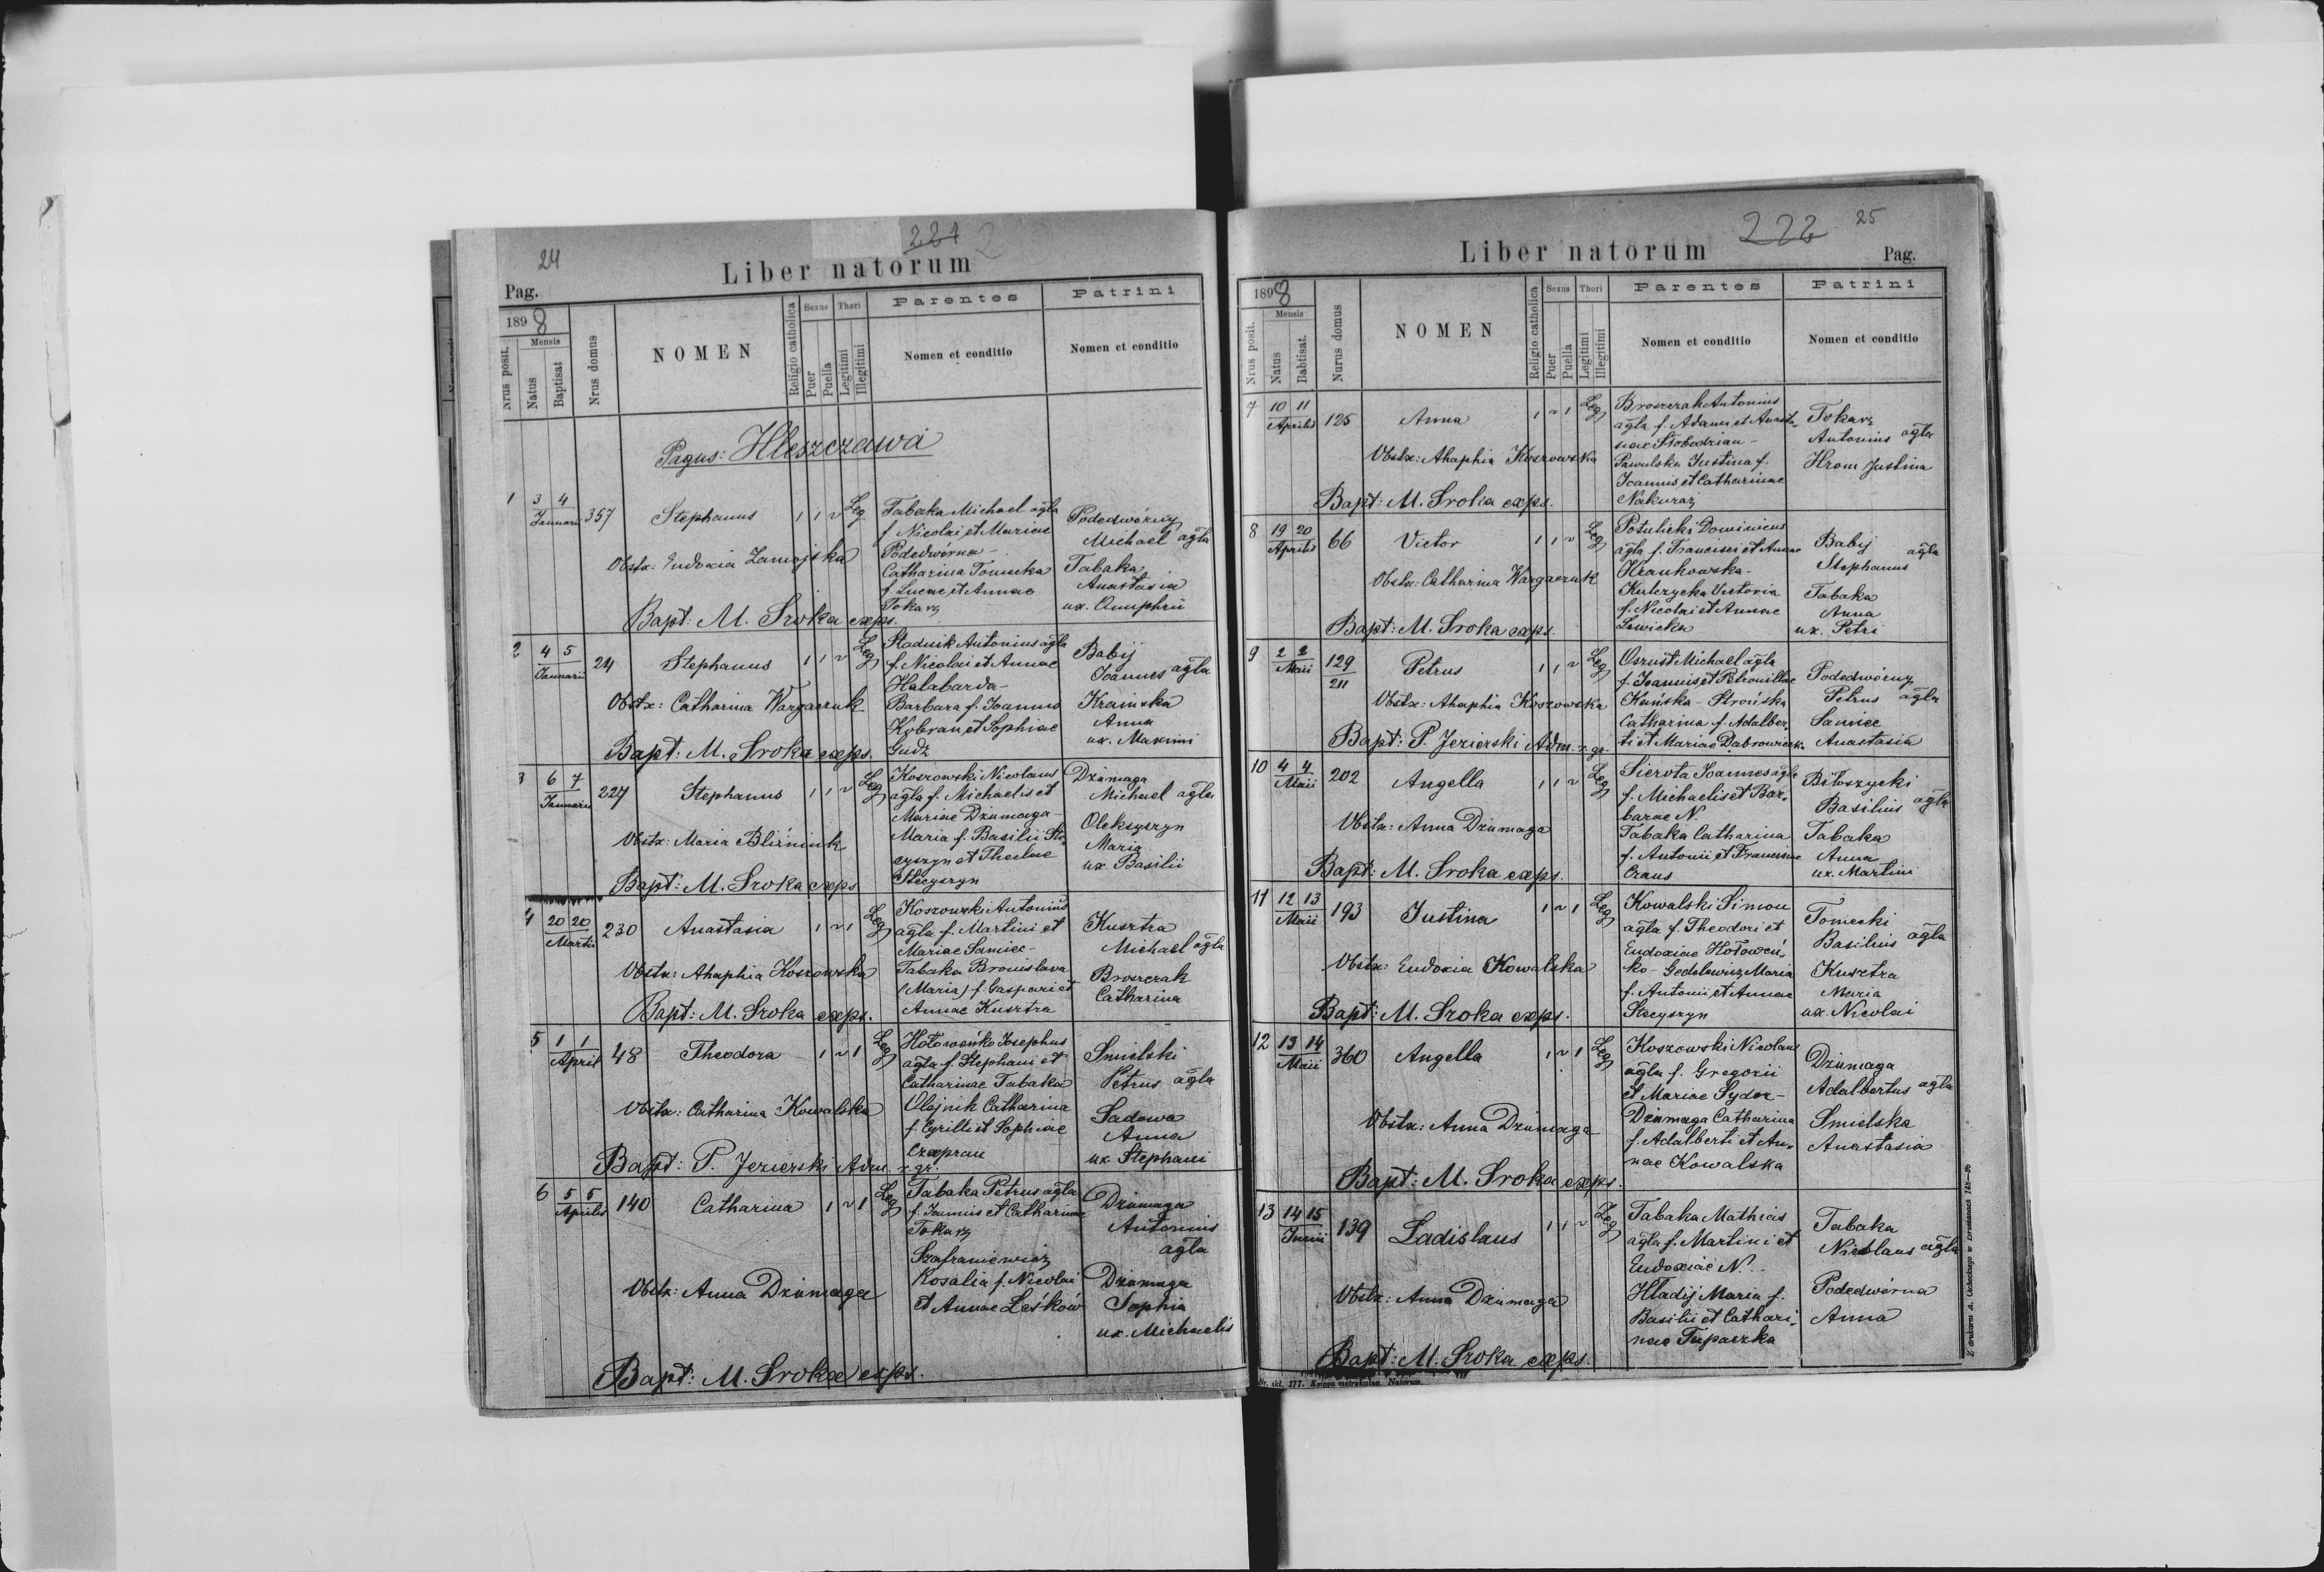 24
221 2
Liber natorum
Pag.
1898
Nrus posit.
Mensis
Natus
Baptisat
Nrus domus
NOMEN
Religio catholica
Sexus
Puer
Puella
Thori
Legitimi
Illegitimi
Parentes
Nomen et conditio
Patrini
Nomen et conditio
Pagus: Hleszczawa
1 3 4 Januarii 357 Stephanus 1 1 Leg
Tabaka Michael agla
f. Nicolai et Mariae
Podedwórna -
Catharina Tomecka
f. Lucae et Annae
Tokarz
Podedwórny
Michael agla
Tabaka
Anastasia
ux. Onuphrii
Obstx: Eudoxia Zamojska
Bapt: M. Sroka exps.
2 4 5 Januarii 24 Stephanus 1 1 Leg
Stadnik Antonius agla
f. Nicolai et Annae
Halabarda -
Barbara f. Joannis
Kobran et Sophiae
Gudz
Babij
Joannes agla
Krainska
Anna
ux. Maximi
Obstx: Catharina Wargaczuk
Bapt: M. Sroka exps.
3 6 7 Januarii 227 Stephanus 1 1 Leg
Koszowski Nicolaus
agla f. Michaelis et
Mariae Dziumaga -
Maria f. Basilii Ste„
cyszyn et Theclae
Stecyszyn
Dziumaga
Michael agla
Oleksyszyn
Maria
ux. Basilii
Obstx: Maria Bliźniuk
Bapt: M. Sroka exps
4 20 20 Martii 230 Anastasia 1 1 Leg
Koszowski Antonius
agla f. Martini et
Mariae Samiec -
Tabaka Bronislava
(Maria) f. Caspari et
Annae Kusztra
Kusztra
Michael agla
Broszczak
Catharina
Obstx: Ahaphia Koszowska
Bapt: M. Sroka exps.
5 1 1 April 48 Theodora 1 1 Leg
Hołoweńko Josephus
agla f. Stephani et
Catharinae Tabaka
Olejnik Catharina
f. Cyrilli et Sophiae
Czapran
Smielski
Petrus agla
Sadowa
Anna
ux. Stephani
Obstx: Catharina Kowalska
Bapt: P. Jezierski Adm. r. gr.
6 5 5 Aprilis 140 Catharina 1 1 Leg
Tabaka Petrus agla
f. Joannis et Catharinae
Tokarz
Szafraniewicz
Rosalia f. Nicolai
et Annae Leśków
Dziumaga
Antonius
agla
Dziumaga
Sophia
ux. Michaelis
Obstx: Anna Dziumaga
Bapt: M. Sroka exps.
222 25
Liber natorum
Pag.
1898
Nrus posit.
Mensis
Natus
Babtisat.
Nurus domus
NOMEN
Religio catholica
Sexus
Puer
Puella
Thori
Legitimi
Illegitimi
Parentes
Nomen et conditio
Patrini
Nomen et conditio
7 10 11 Aprilis 125 Anna 1 1 Leg
Broszczak Antonius
agla f. Adami et
nae Słobodzian -
Pawulska Justina f.
Joannis et Catharinae
Nakuraz
Tokarz
Antonius agla
Hrom Justina
Obstx: Ahaphia Koszowska
Bapt: M. Sroka exps.
8 19 20 Aprilis 66 Victor 1 1 Leg
Potulicki Dominicus
agla f. Francisci et Annae
Hrankowska -
Kulczycka Victoria
f. Nicolai et Annae
Lewicka
Babij
Stephanus agla
Tabaka
Anna
ux. Petri
Obstx: Catharina Wargaczuk
Bapt: M. Sroka exps.
9 2 2 Maii 129 211 Petrus 1 1 Leg
Oszust Michael agla
f. Joannis et Petronillae
Kańska - Strońska
Catharina f. Adalber„
ti et Mariae Dąbrowiecka
Podedwórny
Petrus agla
Samiec
Anastasia
Obstx: Ahaphia Koszowska
Bapt: P. Jezierski Adm. r. gr.
10 4 4 Maii 202 Angella 1 1 Leg
Sierota Joannes agla
f. Michaelis et Bar„
barae N.
Tabaka Catharina
f. Antonii et Franciscae
Craus
Biłoszycki
Basilius agla
Tabaka
Anna
ux. Martini
Obstx: Anna Dziumaga
Bapt: M. Sroka exps.
11 12 13 Maii 193 Justina 1 1 Leg
Kowalski Simon
agla f. Theodori et
Eudoxiae Hołoweń„
ko - Gedelewicz Maria
f. Antonii et Annae
Stecyszyn
Tomecki
Basilius agla
Kusztra
Maria
ux. Nicolai
Obstx: Eudoxia Kowalska
Bapt: M. Sroka exps.
12 13 14 Maii 360 Angella 1 1 Leg
Koszowski Nicolaus
agla f. Gregorii
et Mariae Sydor -
Dziumaga Catharina
f. Adalberti et An„
nae Kowalska
Dziumaga
Adalbertus agla
Smielska
Anastasia
Obstx: Anna Dziumaga
Bapt: M. Sroka exps.
13 14 15 Junii 139 Ladislaus 1 1 Leg
Tabaka Mathias
agla f. Martini et
Eudoxiae N. -
Hladij Maria f.
Basilii et Cathari„
nae Tupaczka
Tabaka
Nicolaus agla
Podedwórna
Anna
Obstx: Anna Dziumaga
Bapt: M. Sroka exps.
Nr. skł. 177. Księga metrykalna. Natorum.